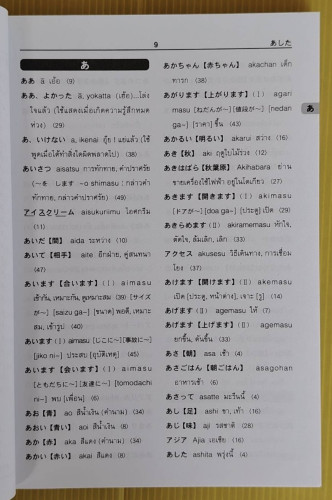 9
あした
あ
ああ ā เอ้อ (9)
ああ、よかった ā, yokatta (เฮ้อ)...โล่ง
ใจแล้ว (ใช้แสดงเมื่อเกิดความรู้สึกหมด
ห่วง) (29)
あ、いけない a, ikenai อุ๊ย ! แย่แล้ว (ใช้
พูดเมื่อได้ทำสิ่งใดผิดพลาดไป) (38)
あいさつ aisatsu การทักทาย, คำปราศรัย
(〜を します -o shimasu : กล่าวคำ
ทักทาย, กล่าวคำปราศรัย) (49)
アイスクリーム aisukurimu ไอศกรีม
(11)
あいだ【間】 aida ระหว่าง (10)
あいて【相手】 aite อีกฝ่าย, คู่สนทนา
(47)
あいます【合います】(I) aimasu
เข้ากัน, เหมาะกัน, ดูเหมาะสม (39) [サイズ
が〜] [saizu ga-] (ขนาด) พอดี, เหมาะ
สม, เข้ารูป (40)
あいます (I) aimasu [じこに〜] [事故に〜]
[jiko ni-] ประสบ (อุบัติเหตุ) (45)
あいます【会います】(I) aimasu
[ともだちに〜] [友達に〜] [tomodachi
ni-] พบ (เพื่อน) (6)
あお【青】 ao สีน้ำเงิน (คำนาม) (34)
あおい【青い】 aoi สีน้ำเงิน (8)
あか【赤】 aka สีแดง (คำนาม) (34)
あかい【赤い】 akai สีแดง (8)
あかちゃん【赤ちゃん】 akachan เด็ก
ทารก (38)
あがります【上がります】(I) agari
masu [ねだんが〜] [値段が〜] [nedan
ga-] [ราคา] ขึ้น (43)
あかるい【明るい】 akarui สว่าง (16)
あき【秋】 aki ฤดูใบไม้ร่วง (12)
あきはばら【秋葉原】 Akihabara ย่าน
ขายเครื่องใช้ไฟฟ้า อยู่ในโตเกียว (27)
あきます【開きます】(I) akimasu
[ドアが〜] [doa ga-] [ประตู] เปิด (29)
あきらめます (II) akiramemasu ทำใจ,
ตัดใจ, ล้มเลิก, เลิก (33)
アクセス akusesu วิธีเดินทาง, การเชื่อม
โยง (37)
あけます【開けます】(II) akemasu
เปิด [ประตู, หน้าต่าง], เจาะ [รู] (14)
あげます (II) agemasu ให้ (7)
あげます【上げます】(II) agemasu
ยกขึ้น, ดันขึ้น (33)
あさ【朝】 asa เช้า (4)
あさごはん【朝ごはん】 asagohan
อาหารเช้า (6)
あさって asatte มะรืนนี้ (4)
あし【足】 ashi ขา, เท้า (16)
あじ【味】 aji รสชาติ (28)
アジア Ajia เอเชีย (16)
あした ashita พรุ่งนี้ (4)
あ